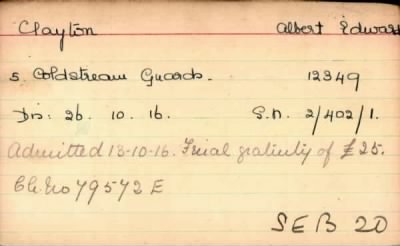 Clayton Albert Edward
5. Coldstream Guards. 12349
Dis: 26. 10. 16. S.D. 2/402/1.
Admitted 13-10-16. Final gratuity of £25.
Ch. No 79572 E
SEB 20